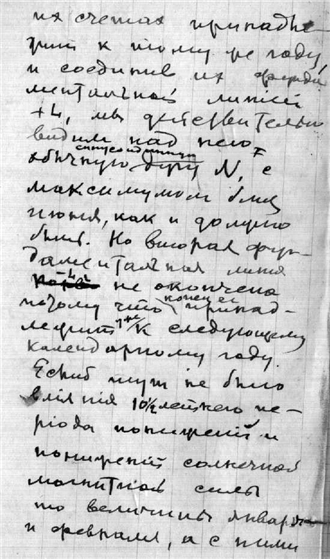 их счетах принадле-
жит к тому же году,
и соединив их фунда-
ментальной линией
+L, мы действительно
видим над нею
обычную синусоидальную дугу N, с
максимумом близ
июня, как и должно
быть. Но вторая фун-
даментальная линия
не окончена
потому что конец ее принад-
лежит уже к следующему
календарному году.
Если б тут не было
влияния 10½летнего пе-
ріода повышений и
понижений солнечной
магнитной силы
то величины января
и февраля, а с ними